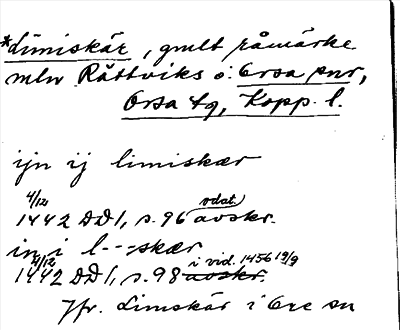 *Limiskär, gmlt råmärke
mln Rättviks o. Orsa snr,
Orsa tg, Kopp. l.
ijn ij limiskær
4/12 1442 DD 1, s. 96 odat. avskr.
in i l---skær
4/12 1442 DD 1, s. 98 avskr. i vid. 1456 19/9
Jfr. Limskär i Ore sn